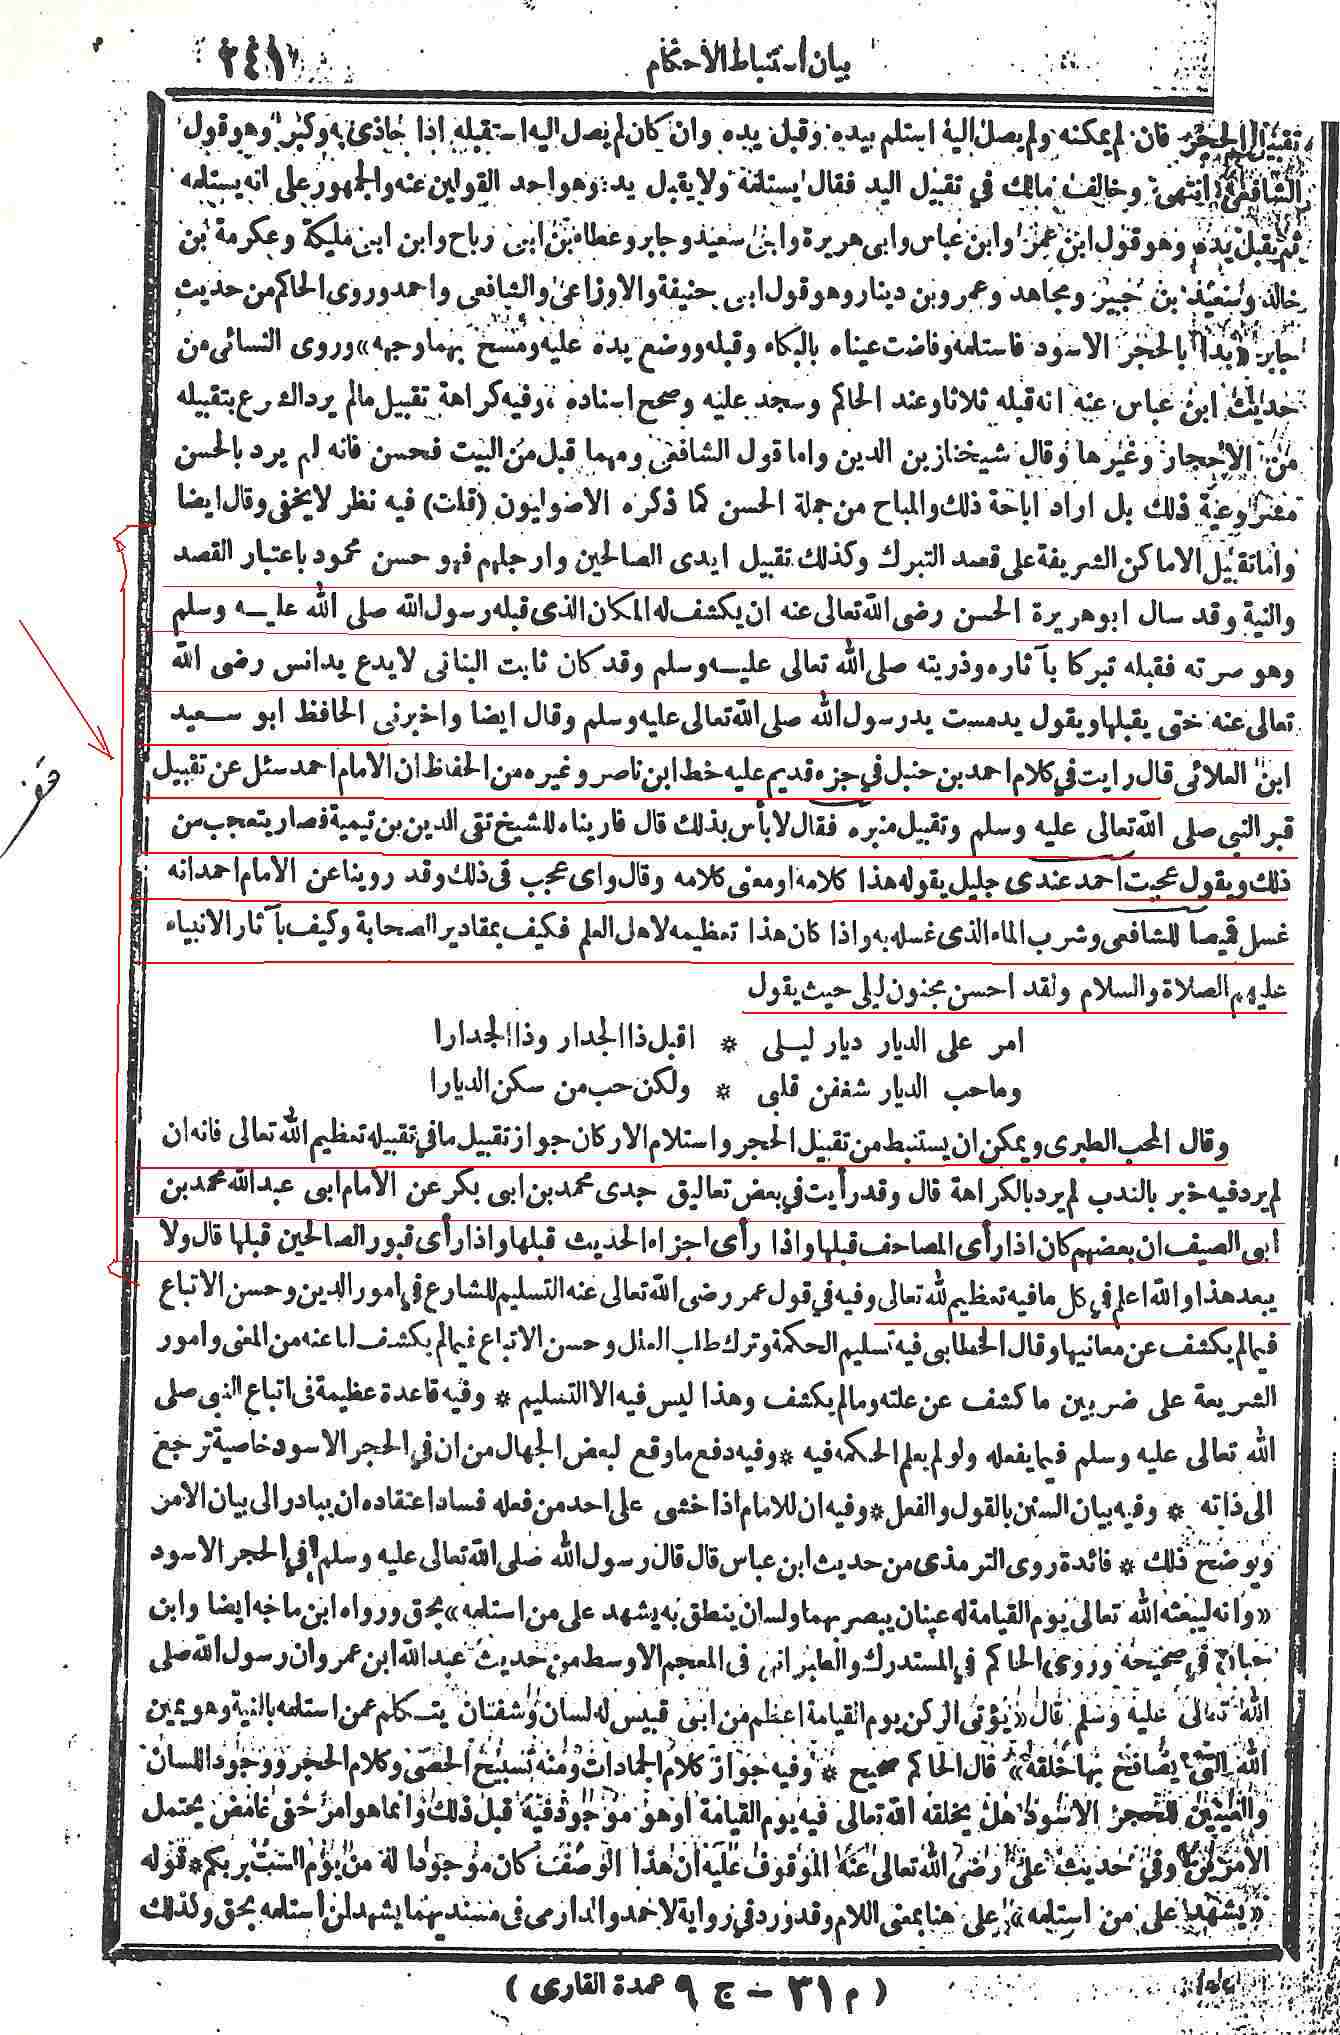 بيان استنباط الأحكام
٢٤١
تقبيل الحجر فان لم يمكنه ولم يصل اليه استلم بيده وقبل يده وان كان لم يصل اليه استقبله اذا حاذى به وكبر وهو قول
الشافعى انتهى وخالف مالك في تقبيل اليد فقال يستلمه ولا يقبل يده وهو احد القولين عنه والجمهور على انه يستلمه
ثم يقبل يده وهو قول ابن عمر وابن عباس وابى هريرة وابى سعيد وجابر وعطاء بن ابى رباح وابن ابى مليكة وعكرمة بن
خالد وسعيد بن جبير ومجاهد وعمرو بن دينار وهو قول ابى حنيفة والاوزاعى والشافعى واحمد وروى الحاكم من حديث
جابر «بدأ بالحجر الاسود فاستلمه وفاضت عيناه بالبكاء وقبله ووضع يده عليه ومسح بهما وجهه» وروى النسائى من
حديث ابن عباس عنه انه قبله ثلاثا وعند الحاكم وسجد عليه وصحح اسناده ، وفيه كراهة تقبيل مالم يرد الشرع بتقبيله
من الاحجار وغيرها وقال شيخنا زين الدين واما قول الشافعى ومهما قبل من البيت فحسن فانه لم يرد بالحسن
مشروعية ذلك بل اراد اباحة ذلك والمباح من جملة الحسن كما ذكره الاصوليون (قلت) فيه نظر لا يخفى وقال ايضا
واما تقبيل الاماكن الشريفة على قصد التبرك وكذلك تقبيل ايدى الصالحين وارجلهم فهو حسن محمود باعتبار القصد
والنية وقد سال ابو هريرة الحسن رضى الله تعالى عنه ان يكشف له المكان الذى قبله رسول الله صلى الله عليه وسلم
وهو سرته فقبله تبركا بآثاره وذريته صلى الله تعالى عليه وسلم وقد كان ثابت البنانى لا يدع يد انس رضى الله
تعالى عنه حتى يقبلها ويقول يد مست يد رسول الله صلى الله تعالى عليه وسلم وقال ايضا واخبرنى الحافظ ابو سعيد
ابن العلائى قال رايت في كلام احمد بن حنبل في جزء قديم عليه خط ابن ناصر وغيره من الحفاظ ان الامام احمد سئل عن تقبيل
قبر النبى صلى الله تعالى عليه وسلم وتقبيل منبره فقال لا بأس بذلك قال فاريناه للشيخ تقى الدين بن تيمية فصار يتعجب من
ذلك ويقول عجبت احمد عندى جليل يقوله هذا كلامه او معنى كلامه وقال واى عجب فى ذلك وقد روينا عن الامام احمد انه
غسل قميصا للشافعى وشرب الماء الذى غسله به واذا كان هذا تعظيمه لاهل العلم فكيف بمقادير الصحابة وكيف بآثار الانبياء
عليهم الصلاة والسلام ولقد احسن مجنون ليلى حيث يقول
امر على الديار ديار ليلى * اقبل ذا الجدار وذا الجدارا
وما حب الديار شغفن قلبى * ولكن حب من سكن الديارا
وقال المحب الطبرى ويمكن ان يستنبط من تقبيل الحجر واستلام الاركان جواز تقبيل ما في تقبيله تعظيم الله تعالى فانه ان
لم يرد فيه خبر بالندب لم يرد بالكراهة قال وقد رأيت في بعض تعاليق جدى محمد بن ابى بكر عن الامام ابى عبد الله محمد بن
ابى الصيف ان بعضهم كان اذا رأى المصاحف قبلها واذا رأى اجزاء الحديث قبلها واذا رأى قبور الصالحين قبلها قال ولا
يبعد هذا والله اعلم في كل ما فيه تعظيم لله تعالى وفيه في قول عمر رضى الله تعالى عنه التسليم للشارع في امور الدين وحسن الاتباع
فيما لم يكشف عن معانيها وقال الخطابى فيه تسليم الحكمة وترك طلب العلل وحسن الاتباع فيما لم يكشف لنا عنه من المعنى وامور
الشريعة على ضربين ما كشف عن علته وما لم يكشف وهذا ليس فيه الا التسليم * وفيه قاعدة عظيمة فى اتباع النبى صلى
الله تعالى عليه وسلم فيما يفعله ولو لم يعلم الحكمه فيه * وفيه دفع ما وقع لبعض الجهال من ان في الحجر الاسود خاصية ترجع
الى ذاته * وفيه بيان السنن بالقول والفعل * وفيه ان للامام اذا خشى على احد من فعله فساد اعتقاده ان يبادر الى بيان الامر
ويوضح ذلك * فائدة روى الترمذى من حديث ابن عباس قال قال رسول الله صلى الله تعالى عليه وسلم في الحجر الاسود
«وانه ليبعثه الله تعالى يوم القيامة له عينان يبصر بهما ولسان ينطق به يشهد على من استلمه» بحق ورواه ابن ماجه ايضا وابن
حبان في صحيحه وروى الحاكم في المستدرك والطبرانى فى المعجم الاوسط من حديث عبد الله ابن عمرو ان رسول الله صلى
الله تعالى عليه وسلم قال «يؤتى الركن يوم القيامة اعظم من ابى قبيس له لسان وشفتان يتكلم عمن استلمه بالنية وهو يمين
الله التى يصافح بها خلقه» قال الحاكم صحيح * وفيه جواز كلام الجمادات ومنه تسبيح الحصى وكلام الحجر ووجود اللسان
والعينين للحجر الاسود هل يخلقه الله تعالى فيه يوم القيامة او هو موجود فيه قبل ذلك وانما هو امر خفى غامض يحتمل
الامرين وفي حديث على رضى الله تعالى عنه الموقوف عليه ان هذا الوصف كان موجودا له من يوم الست بربكم * قوله
«يشهد على من استلمه» على هنا بمعنى اللام وقد ورد في رواية لاحمد والدارمى فى مسنديهما يشهد لمن استلمه بحق وكذلك
( م ٣١ - ج ٩ عمدة القارى )